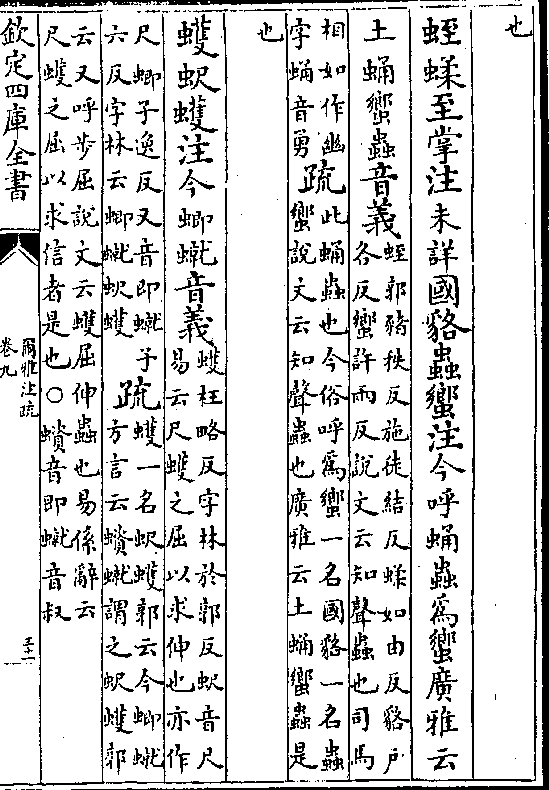 也
蛭蝚至掌注未詳國貉蟲蠁注今呼蛹蟲為蠁廣雅云
土蛹蠁蟲音義
蛭郭豬秩反施徒結反蝚如由反貉戶
各反蠁許兩反說文云知聲蟲也司馬
相如作
字蛹音勇
疏
此蛹蟲也今俗呼為蠁一名國貉一名蟲
蠁說文云知聲蟲也廣雅云土蛹蠁蟲是
也
蠖蚇蠖注今蝍䗩音義
蠖枉略反字林於郭反蚇音尺
易云尺蠖之屈以求伸也亦作
尺蝍子逸反又音即䗩子
六反字林云蝍䗩蚇蠖
疏
蠖一名蚇蠖郭云今蝍䗩
方言云蟦䗩謂之蚇蠖郭
云又呼步屈說文云蠖屈伸蟲也易係辭云
尺蠖之屈以求信者是也○蟦音即䗩音叔
欽定四庫全書
爾雅注疏
卷九